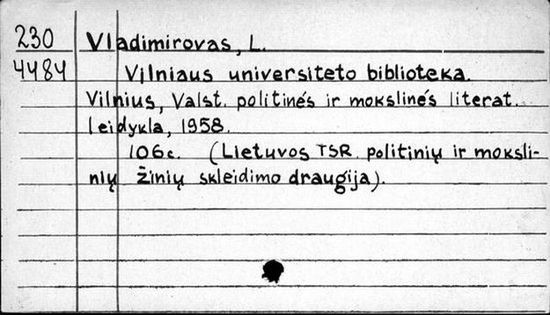 230 Vladimirovas, L.
4484 Vilniaus universiteto biblioteka.
Vilnius, Valst. politinės ir mokslinės literat.
leidykla, 1958.
106c. (Lietuvos TSR politinių ir moksli-
nių žinių skleidimo draugija).